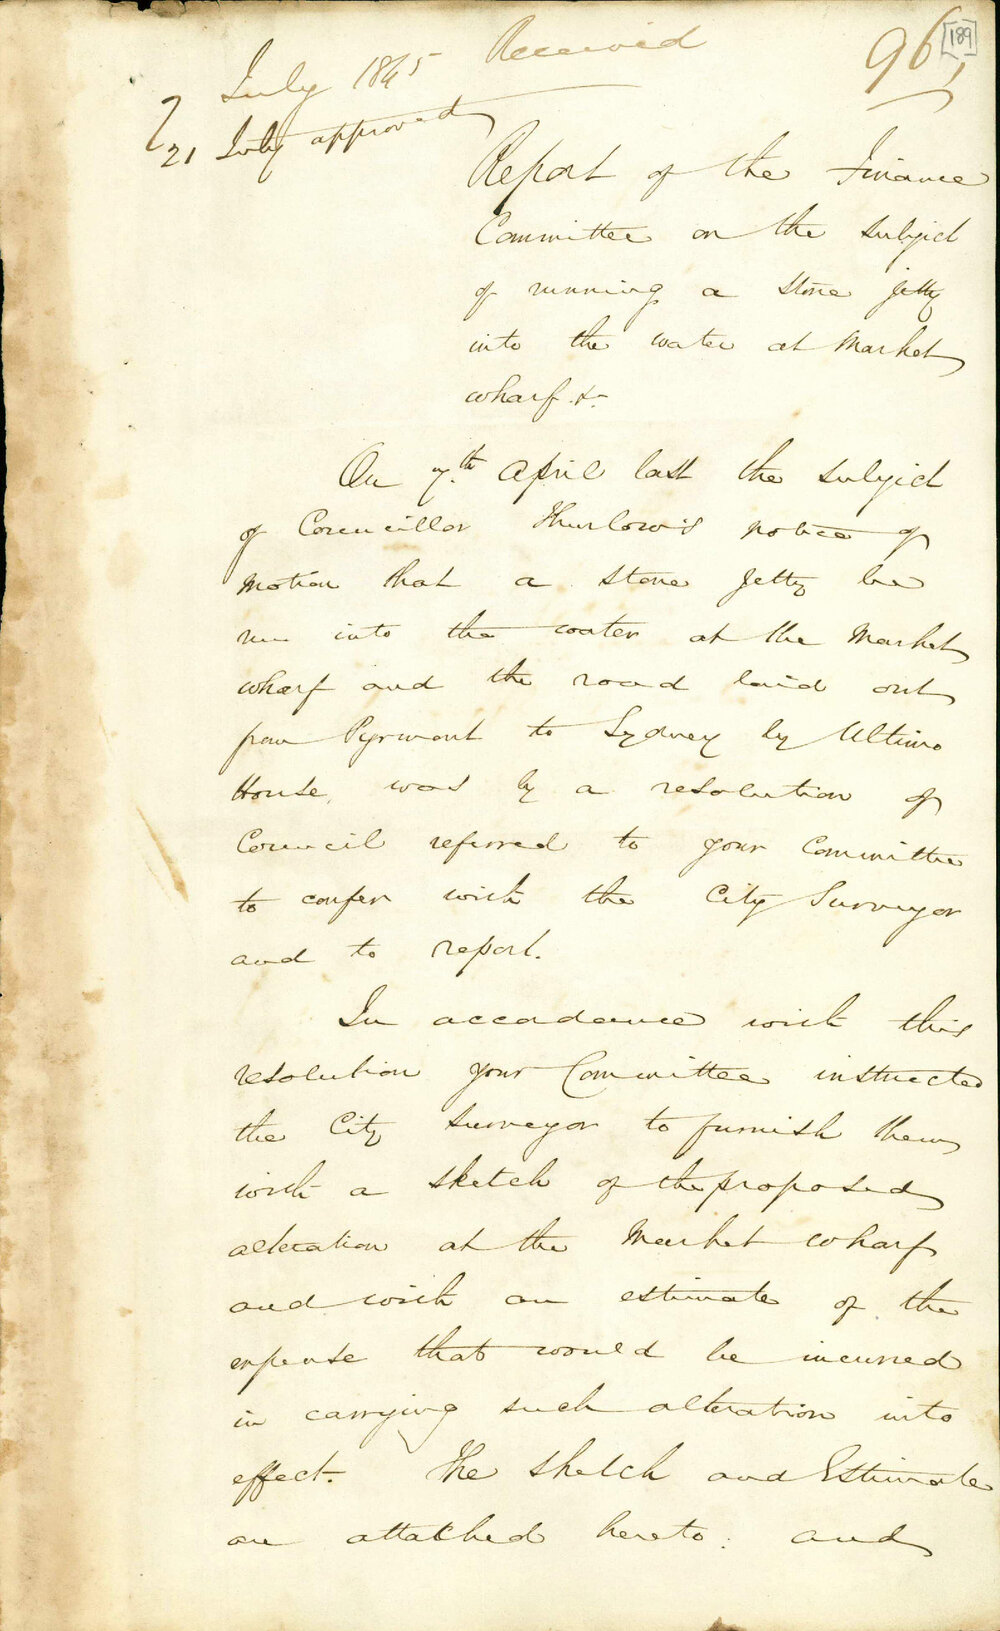 7 July 1845 Received
21 July approved
96
[189]
Report of the Finance
Committee on the subject
of running a stone jetty
into the water at Market
wharf &c
On 7th April last the subject
of Councillor Thurlow's notice of
Motion that a stone Jetty be
run into the water at the Market
wharf and the road laid out
from Pyrmont to Sydney by Ultimo
House, was by a resolution of
Council referred to your Committee
to confer with the City Surveyor
and to report.
In accordance with this
resolution your Committee instructed
the City Surveyor to furnish them
with a sketch of the proposed
alteration at the Market wharf
and with an estimate of the
expense that would be incurred
in carrying such alteration into
effect. The sketch and Estimate
are attached hereto. and